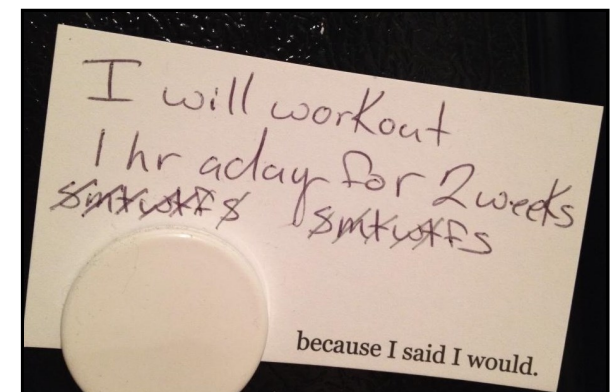 I will workout
1 hr aday for 2 weeks
smtwtfs smtwtfs
because I said I would.